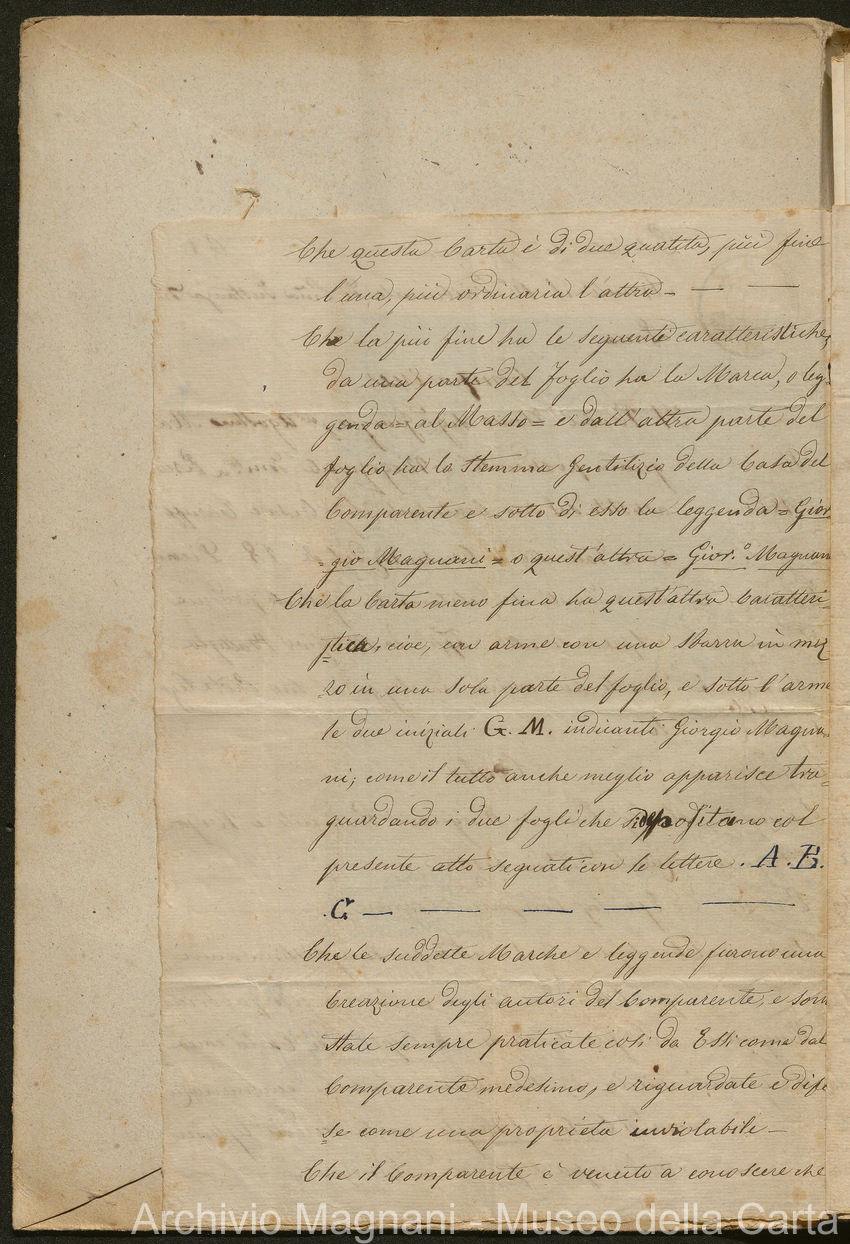 Che questa Carta è di due qualità, più fine
l'una, più ordinaria l'altra —
Che la più fine ha le seguente caratteristiche,
da una parte del foglio ha la Marca, o leg-
genda = al Masso = e dall'altra parte del
foglio ha lo Stemma Gentilizio della Casa del
Comparente e sotto di esso la leggenda = Gior
= gio Magnani = o quest'altra = Gior.º Magnan
Che la Carta meno fina ha quest'altra Caratteri-
stica, cioe, un arme con una sbarra in mez
zo in una sola parte del foglio, e sotto l'arme
le due iniziali G. M. indicanti Giorgio Magna-
ni; come il tutto anche meglio apparisce tra=
guardando i due fogli che si depositano col
presente atto segnati con le lettere . A . B.
. C — — — — —
Che le suddette Marche e leggende furono una
Creazione degli autori del Comparente, e sono
state sempre praticate così da Essi come dal
Comparente medesimo, e riguardate e dife
se come una proprietà inviolabile —
Che il Comparente è venuto a conoscere che
Archivio Magnani - Museo della Carta